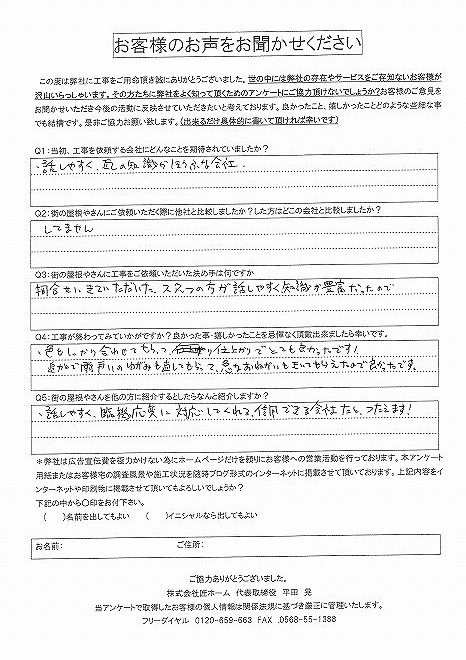 お客様のお声をお聞かせください
この度は弊社に工事をご用命頂き誠にありがとうございました。世の中には弊社の存在やサービスをご存知ないお客様が
沢山いらっしゃいます。その方たちに弊社をよく知って頂くためのアンケートにご協力頂けないでしょうか?お客様のご意見を
お聞かせいただき今後の活動に反映させていただきたいと考えております。良かったこと、嬉しかったことどのような些細な事
でも結構です。是非ご協力お願い致します。(出来るだけ具体的に書いて頂ければ幸いです)
Q1:当初、工事を依頼する会社にどんなことを期待されていましたか?
・話しやすく、瓦の知識がほうふな会社。
Q2:街の屋根やさんにご依頼いただく際に他社と比較しましたか?した方はどこの会社と比較しましたか?
してません
Q3:街の屋根やさんに工事をご依頼いただいた決め手は何ですか
問合せいきていただけた、スタッフの方が話しやすく知識が豊富だったので
Q4:工事が終わってみていかがですか?良かった事・嬉しかったことを忌憚なく頂戴出来ましたら幸いです。
・色もしっかり合わせてもらって、仕上がりでとても良かったです!
雨戸いのゆがみも直してもらって、急なおねがいもきいてもらえたので良かったです。
Q5:街の屋根やさんを他の方に紹介するとしたらなんと紹介しますか?
・話しやすく、臨機応変に対応してくれる、信用できる会社だと、つたえます!
＊弊社は広告宣伝費を極力かけない為にホームページだけを頼りにお客様への営業活動を行っております。本アンケート
用紙またはお客様宅の調査風景や施工状況を随時ブログ形式のインターネットに掲載させて頂いております。上記内容をイ
ンターネットや印刷物に掲載させて頂いてもよろしいでしょうか?
下記の中から○印をお付下さい。
(　)名前を出してもよい　(　)イニシャルなら出してもよい
お名前:　ご住所:
ご協力ありがとうございました。
株式会社匠ホーム 代表取締役 平田 晃
当アンケートで取得したお客様の個人情報は関係法規に基づき厳正に管理いたします。
フリーダイヤル 0120-659-663 FAX .0568-55-1388